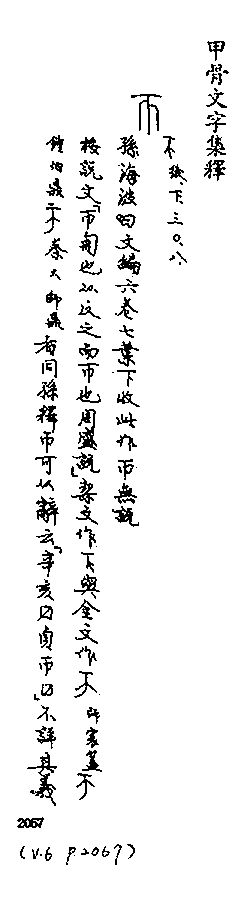 甲骨文字集釋
帀
不 後.下.三〇.八.
孫海波曰文編六卷七葉下收此作帀無說
按說文「帀匝也从反之而帀也周盛說」契文作不與金文作不 師寰簋 不
鐘伯鼎 不 蔡大師鼎 者同孫釋帀可从辭云「辛亥囗貞帀囗」不詳其義
2067
(V.6 P.2067)